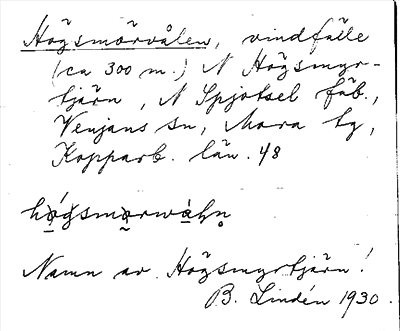 Högsmörvålen, vindfälle
(ca 300 m.) N Högsmyr-
tjärn, N Spjotsel fäb.,
Venjans sn, Mora tg,
Kopparb. län. 48
Namn av Högsmyrtjärn!
B. Lindén 1930.